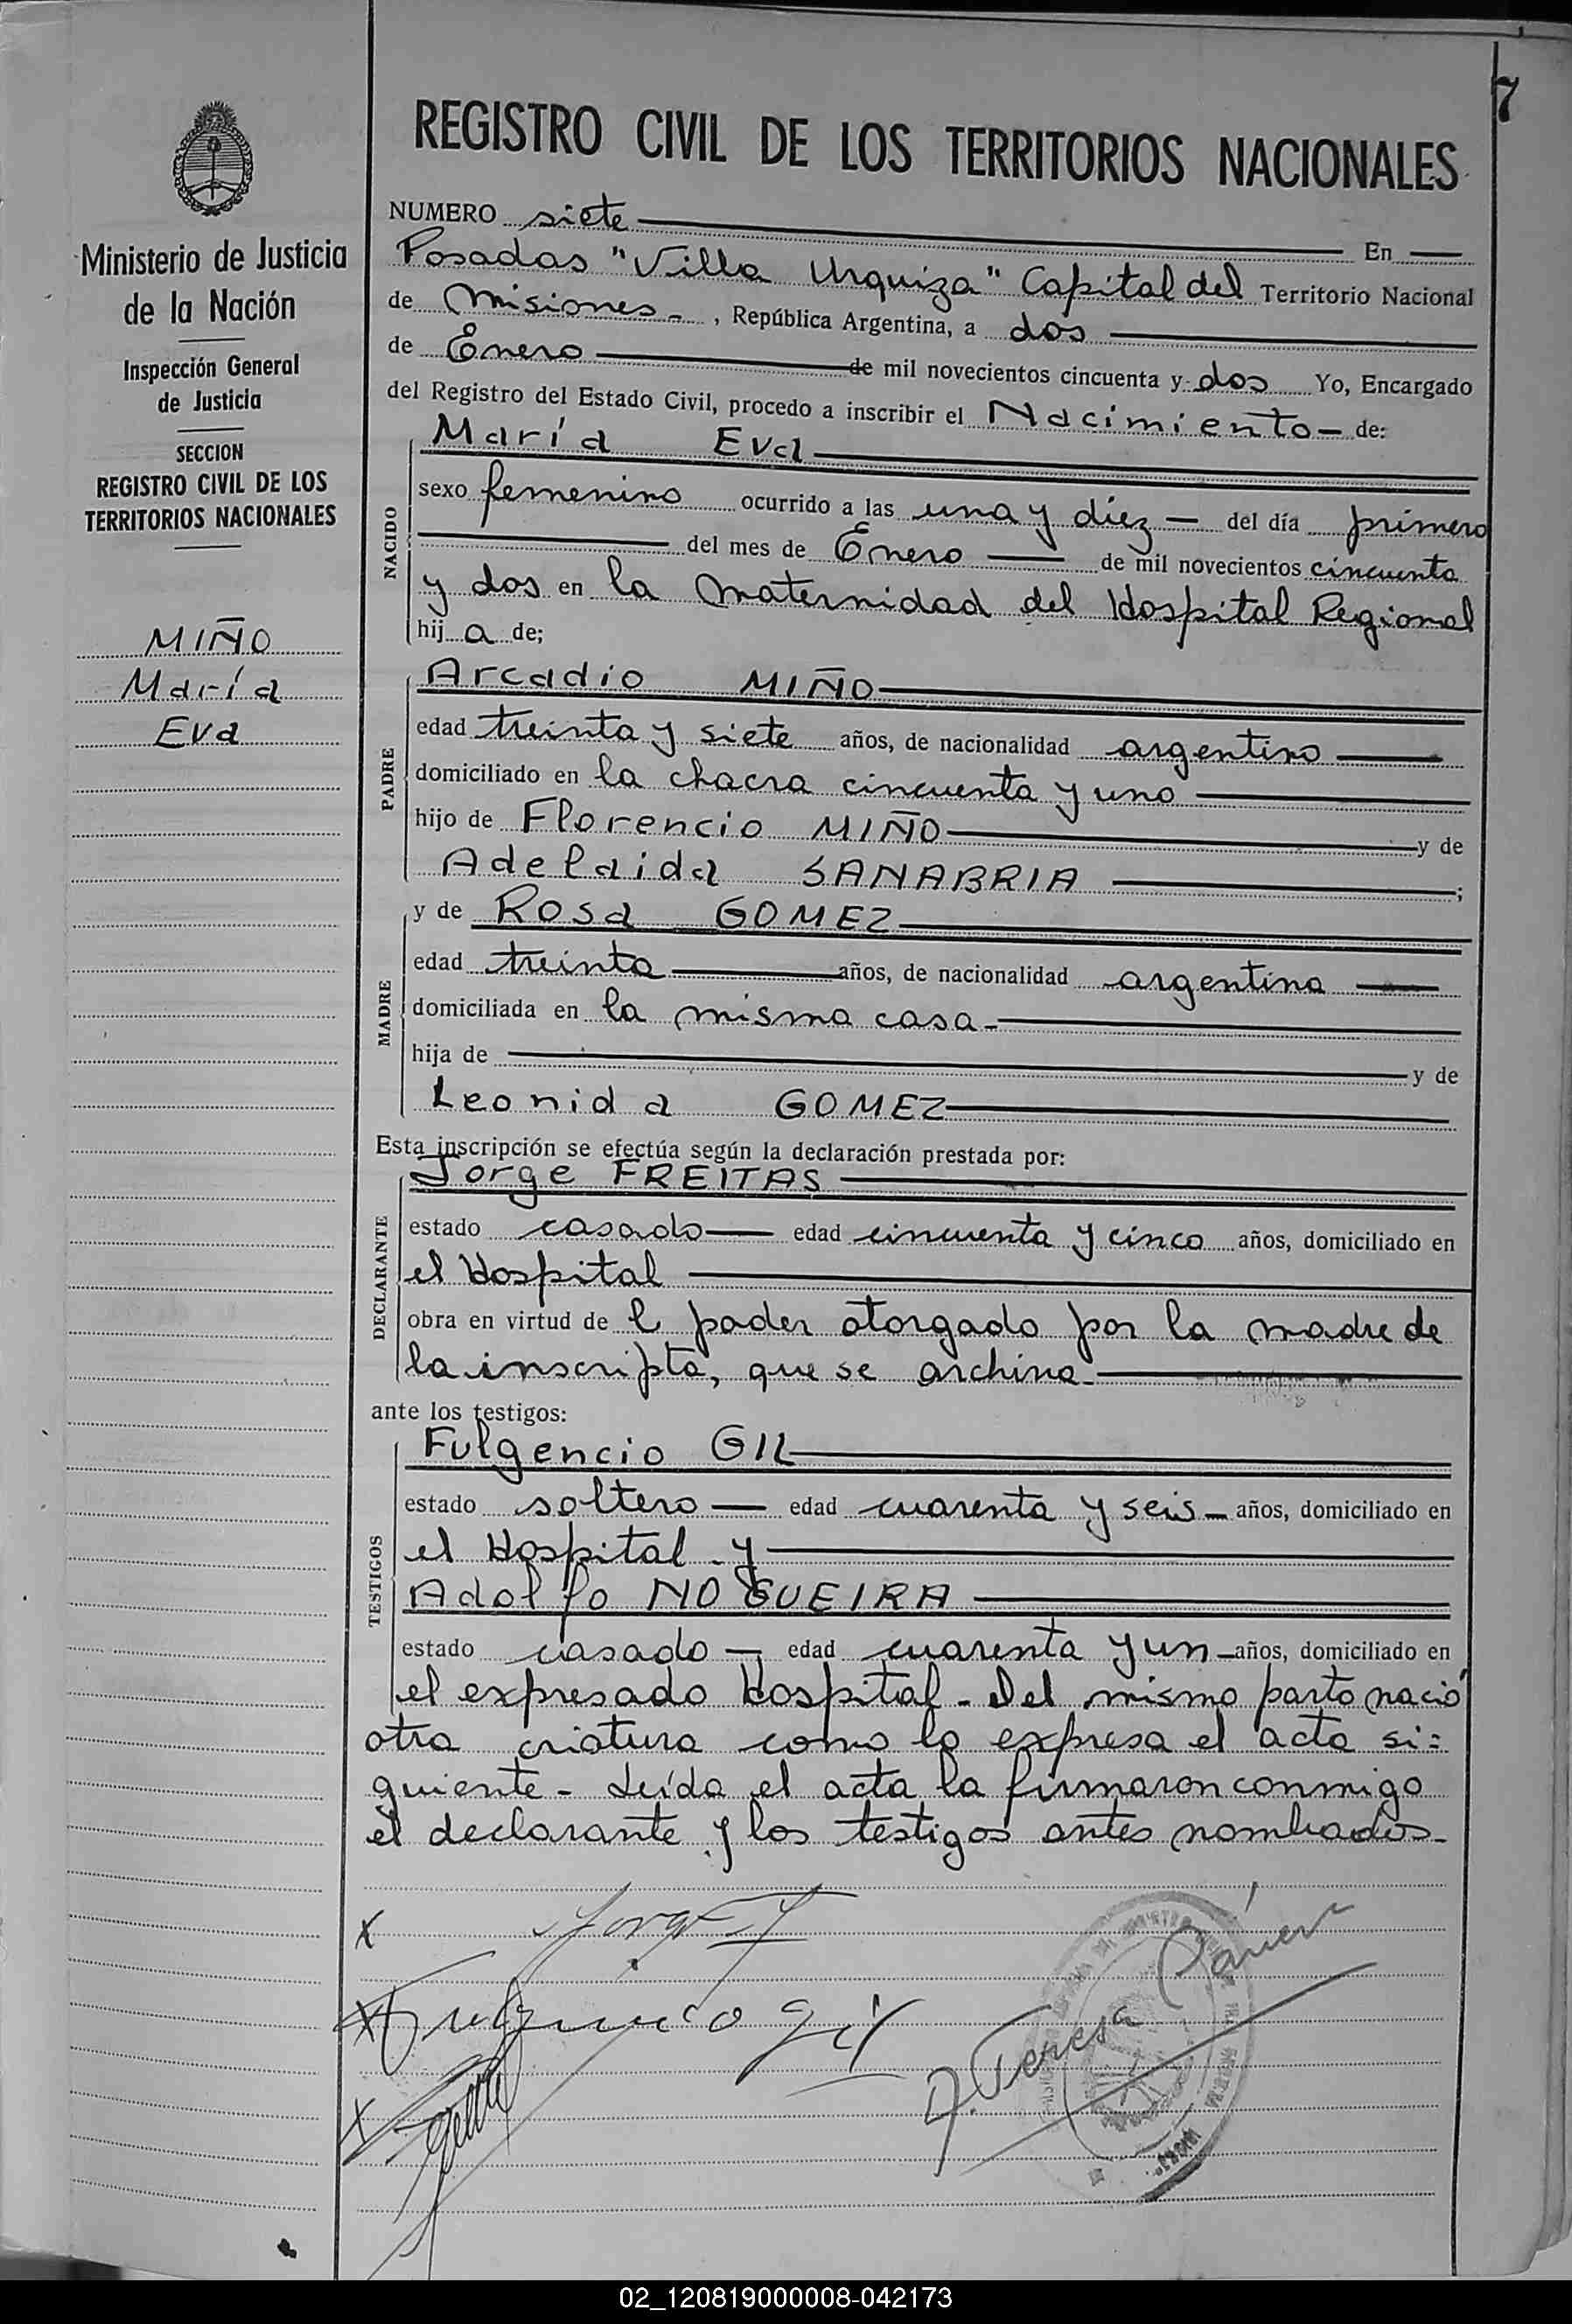 7
REGISTRO CIVIL DE LOS TERRITORIOS NACIONALES
Ministerio de Justicia
de la Nación
Inspección General
de Justicia
SECCION
REGISTRO CIVIL DE LOS
TERRITORIOS NACIONALES
MIÑO
María
Eva
NUMERO siete En
Posadas "Villa Urquiza" Capital del Territorio Nacional
de Misiones - , República Argentina, a dos
de Enero de mil novecientos cincuenta y dos Yo, Encargado
del Registro del Estado Civil, procedo a inscribir el Nacimiento - de:
NACIDO
María Eva
sexo femenino ocurrido a las una y diez - del día primero
del mes de Enero de mil novecientos cincuenta
y dos en la maternidad del Hospital Regional
hij a de;
PADRE
Arcadio MIÑO
edad treinta y siete años, de nacionalidad argentino
domiciliado en la chacra cincuenta y uno
hijo de Florencio MIÑO y de
Adelaida SANABRIA ;
MADRE
y de Rosa GOMEZ
edad treinta años, de nacionalidad argentina
domiciliada en la misma casa -
hija de y de
Leonida GOMEZ
Esta inscripción se efectúa según la declaración prestada por:
DECLARANTE
Jorge FREITAS
estado casado edad cincuenta y cinco años, domiciliado en
el Hospital
obra en virtud de l poder otorgado por la madre de
la inscripta, que se archiva -
ante los testigos:
TESTIGOS
Fulgencio GIL
estado soltero - edad cuarenta y seis - años, domiciliado en
el Hospital y
Adolfo NOGUEIRA
estado casado - edad cuarenta y un - años, domiciliado en
el expresado Hospital - Del mismo parto nació
otra criatura como lo expresa el acta si=
guiente - Leída el acta la firmaron conmigo
el declarante y los testigos antes nombrados -
x Jorge F
x Fulgencio Gil
x
Teresa
02_120819000008-042173